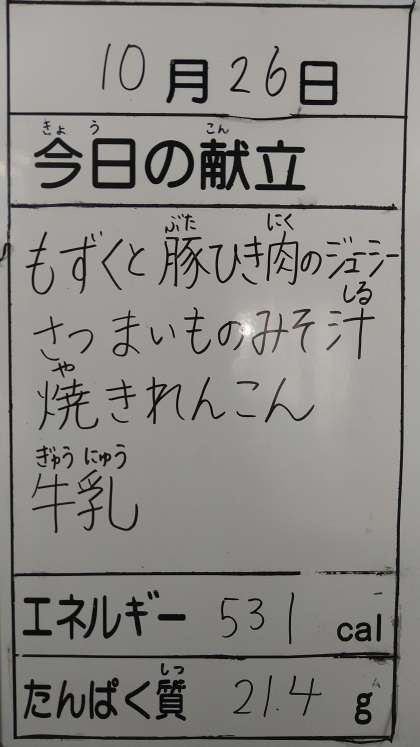 10月26日
きょう こん
今日の献立
ぶた にく
もずくと豚ひき肉のジューシー
しる
さつまいものみそ汁
や
焼きれんこん
ぎゅう にゅう
牛乳
エネルギー 531 cal
しつ
たんぱく質 21.4 g